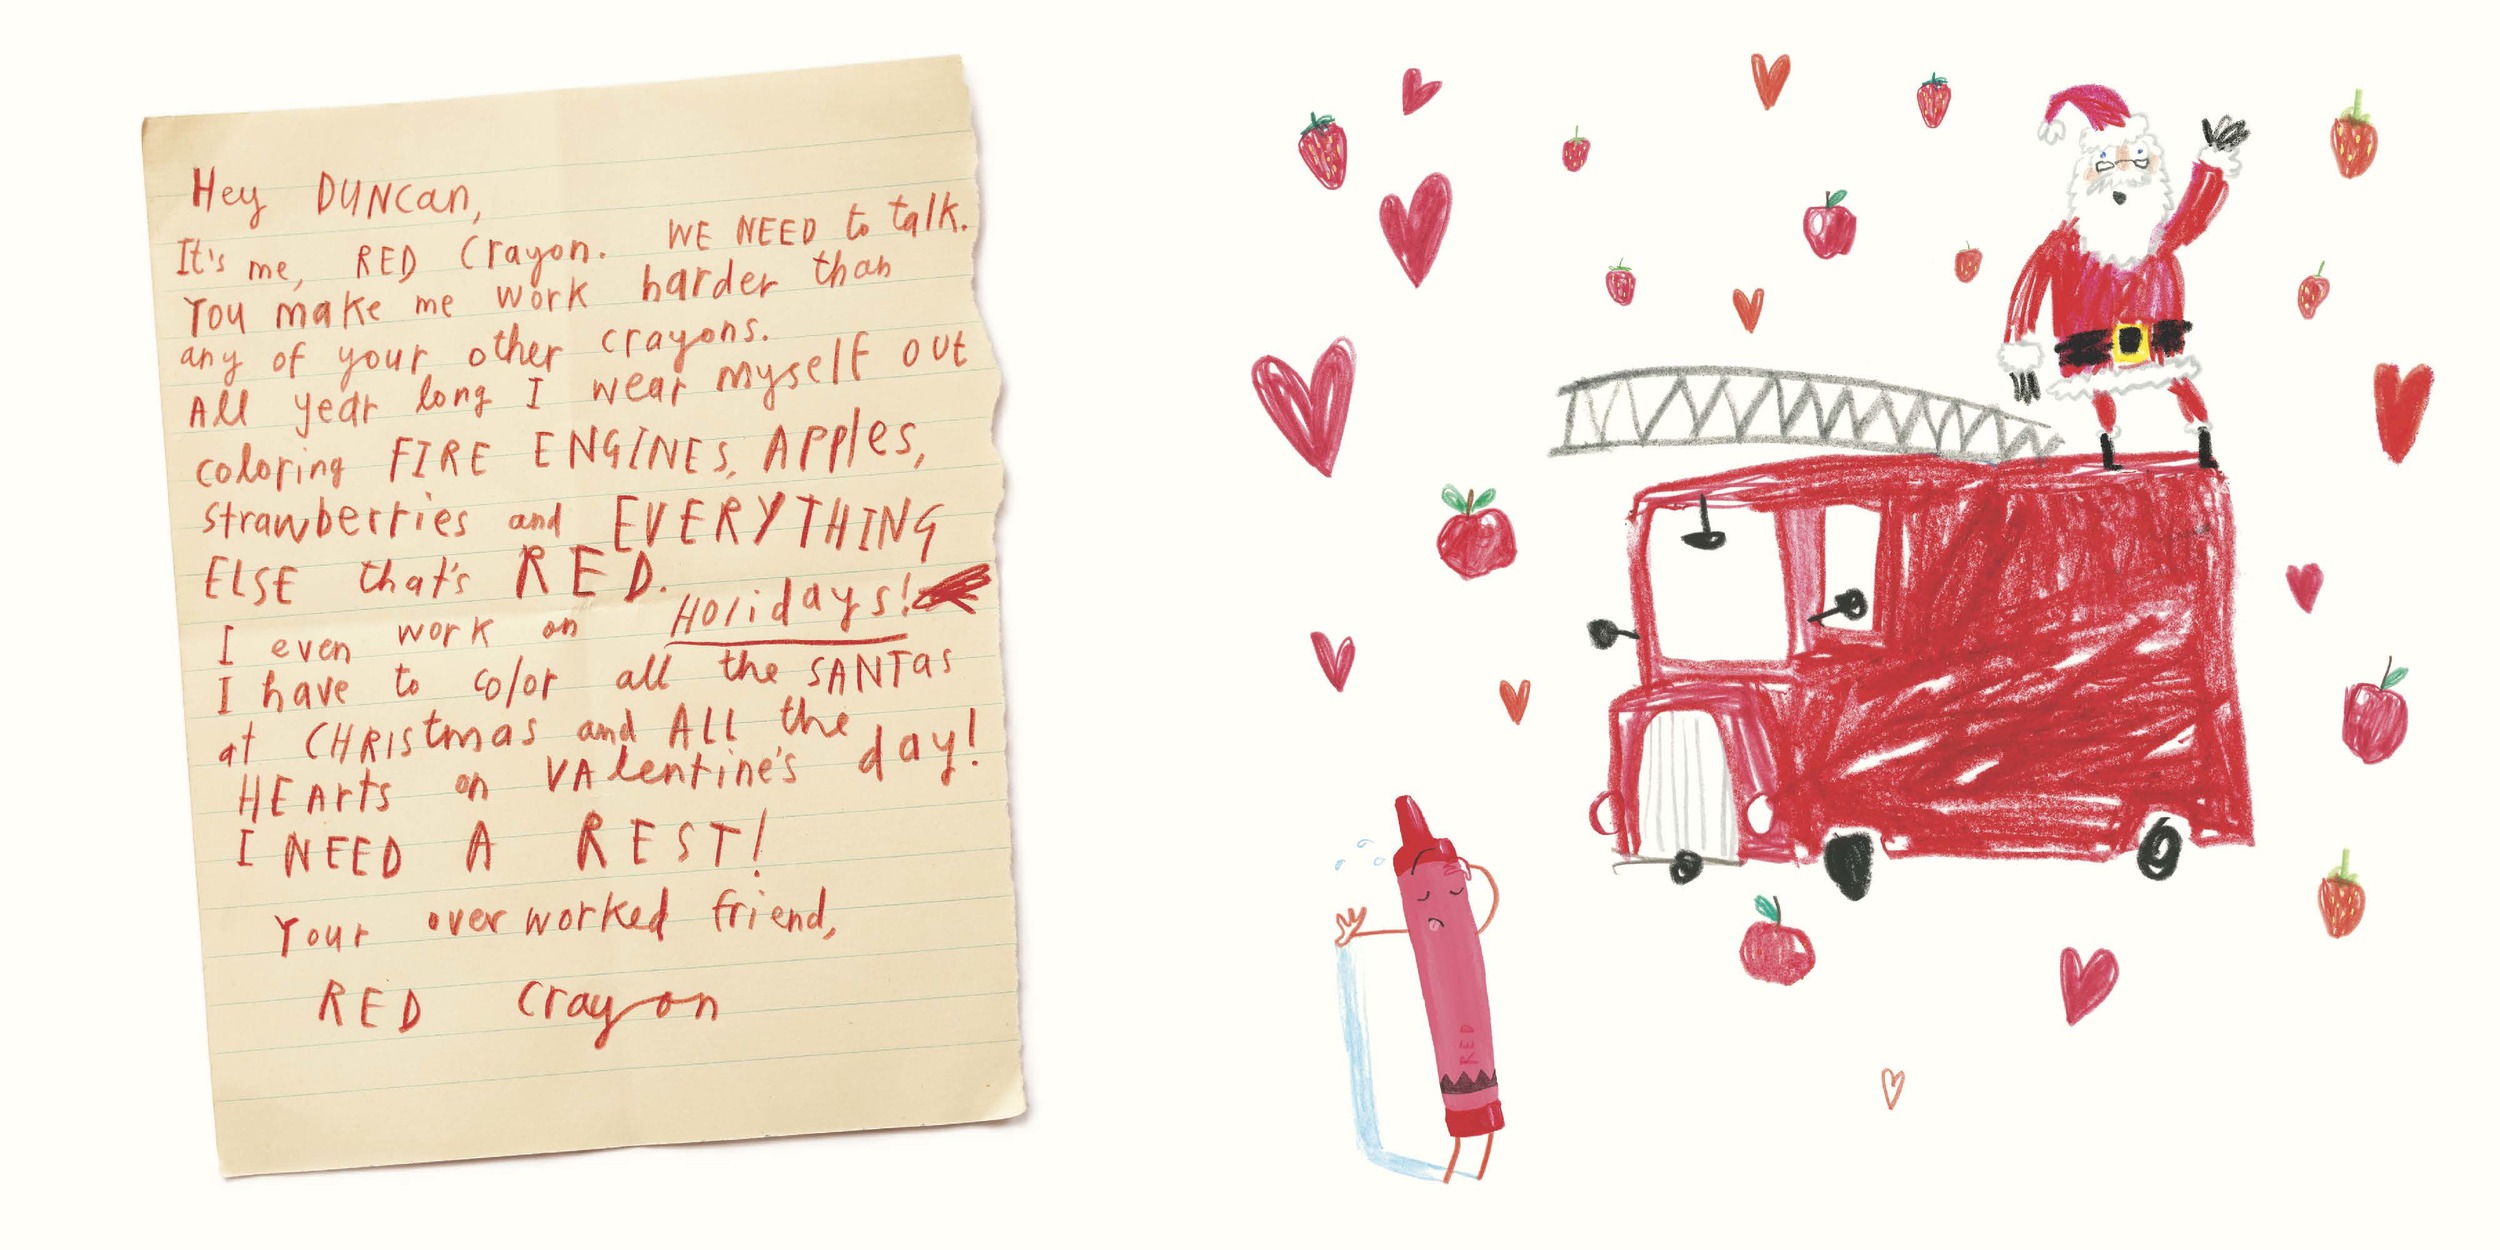 Hey DUNCan,
It's me, RED Crayon. WE NEED to talk.
You make me work harder than
any of your other crayons.
All year long I wear myself out
coloring FIRE ENGINES, Apples,
strawberries and EVERYTHING
ELSE that's RED.
I even work on Holidays!
I have to color all the SANTas
at CHRIStmas and ALL the
HEArts on VAlentine's day!
I NEED A REST!
Your overworked friend,
RED Crayon
RED